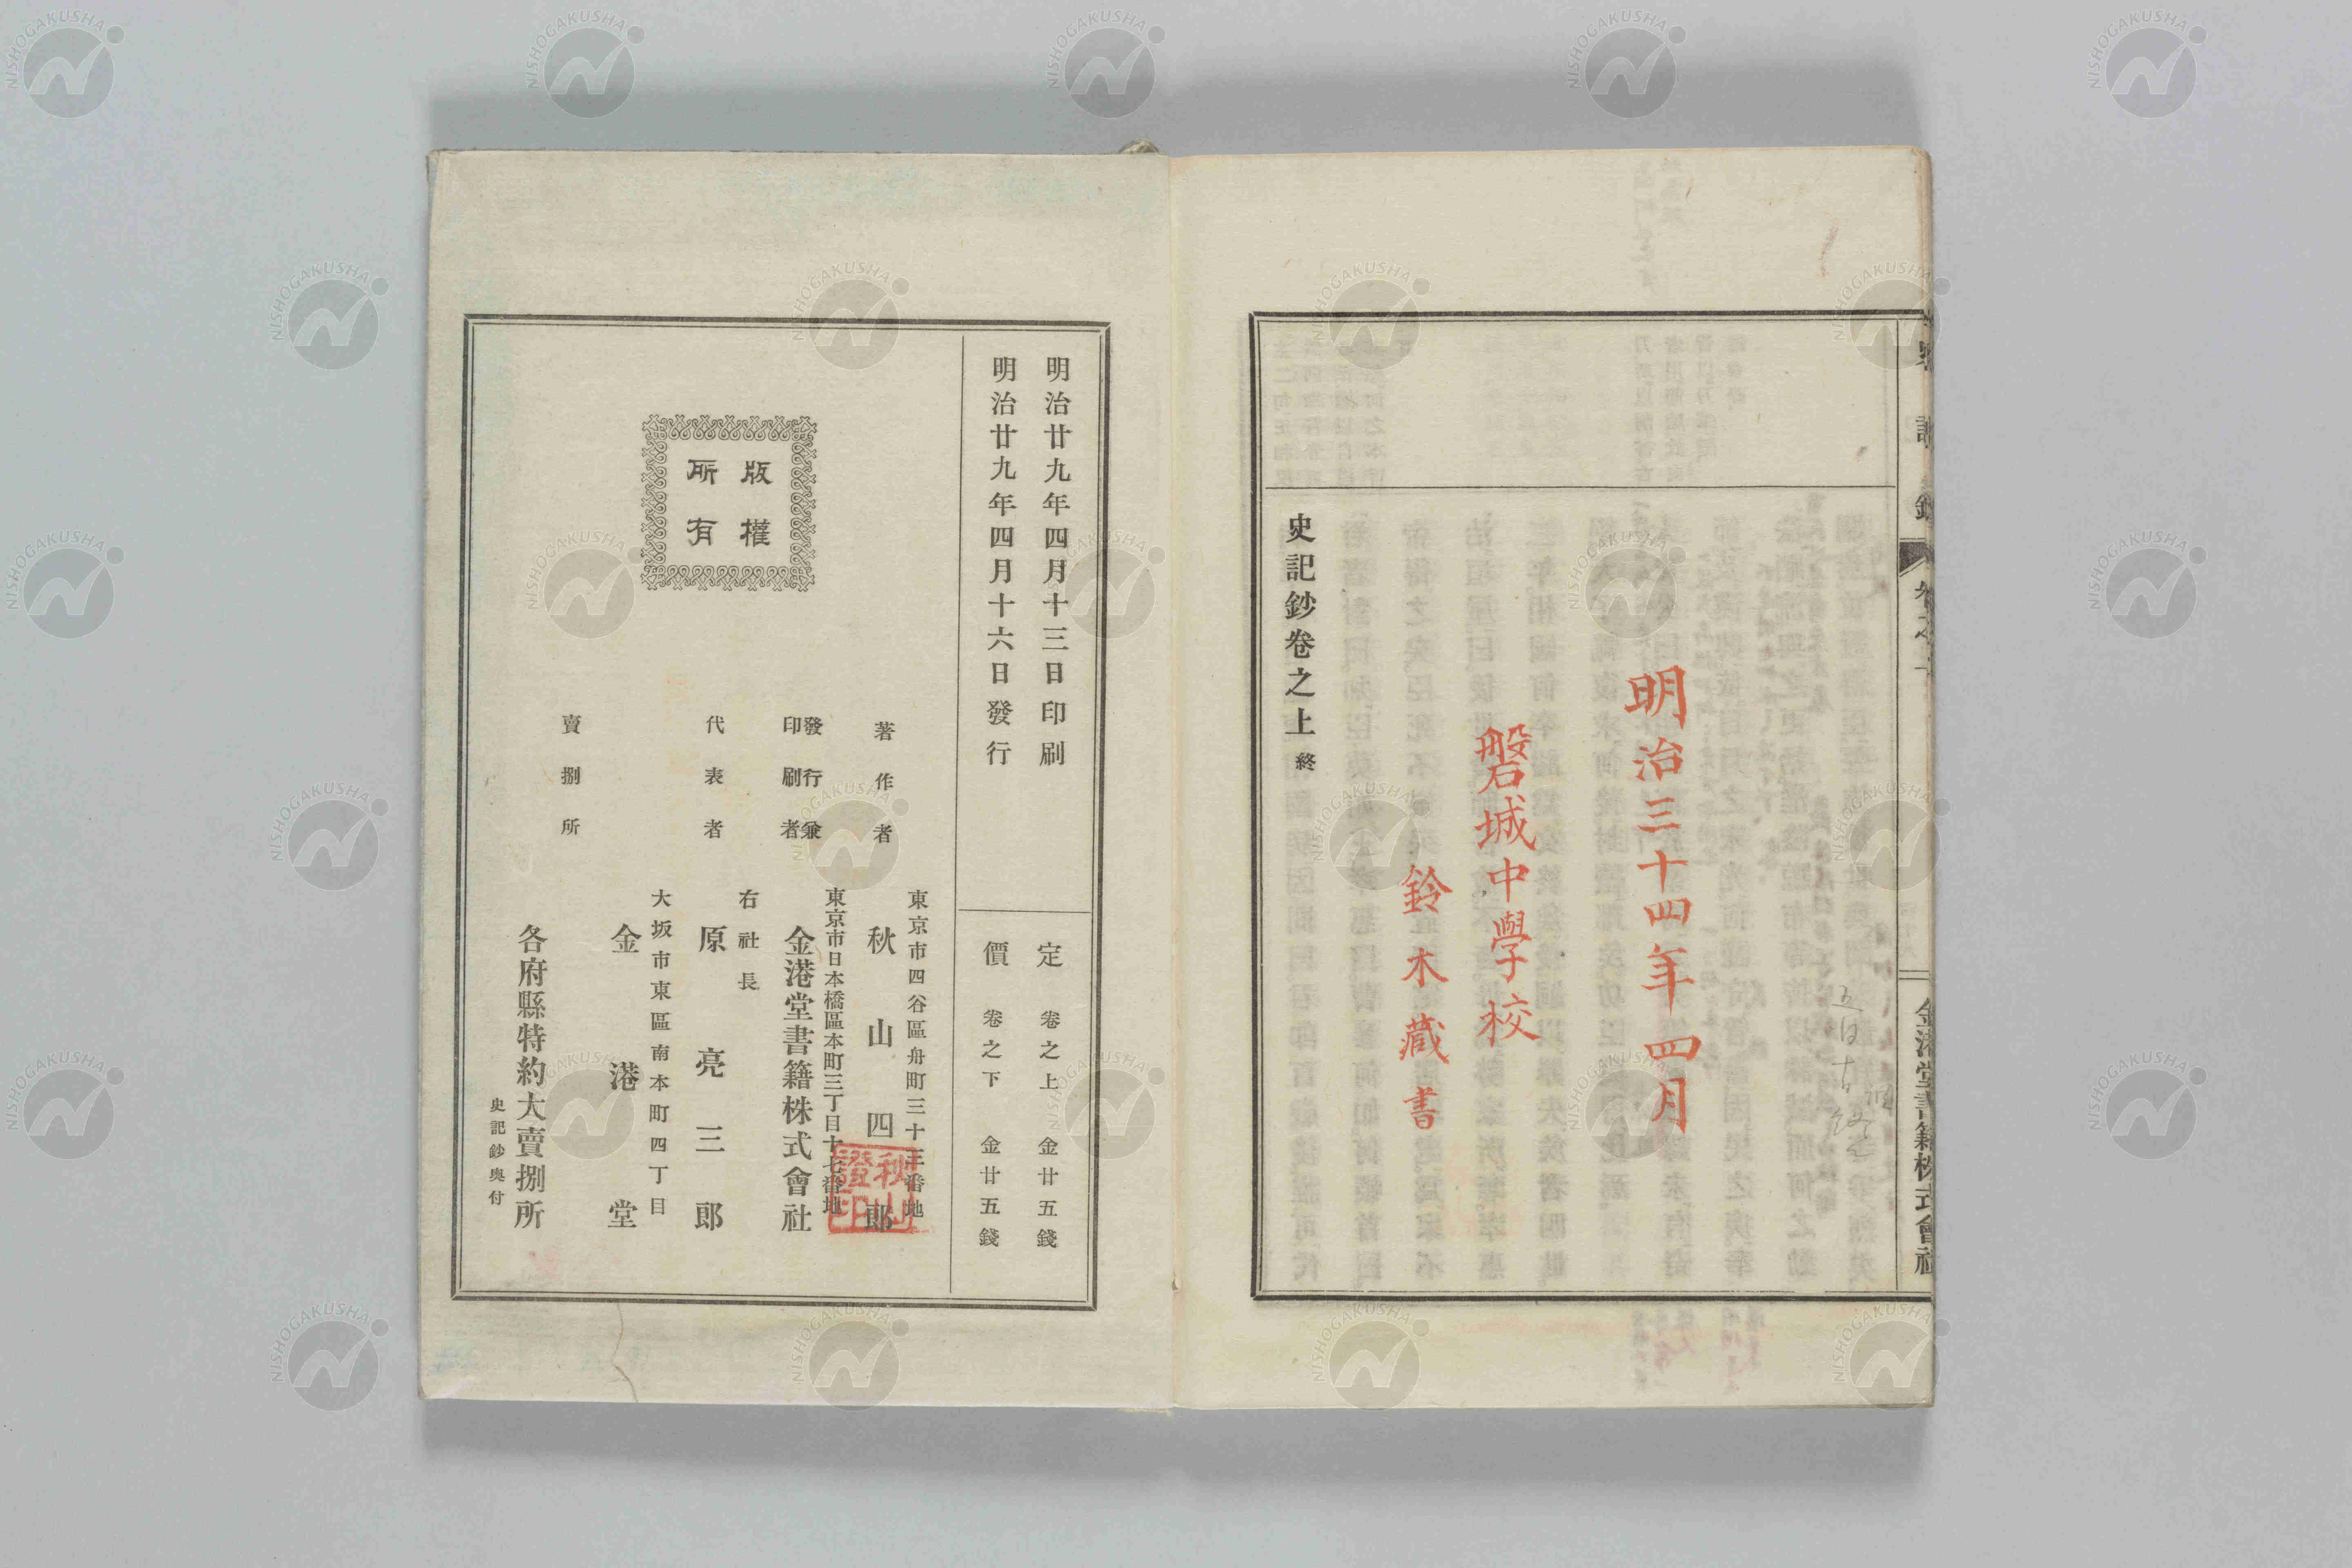 史記鈔
金港堂書籍株式會社
明治三十四年四月
磐城中學校
鈴木藏書
史記鈔卷之上終
明治廿九年四月十三日印刷
明治廿九年四月十六日發行
定價
卷之上 金廿五錢
卷之下 金廿五錢
版權所有
著作者
東京市四谷區舟町三十三番地
秋山四郎
發行兼印刷者
東京市日本橋區本町三丁目十七番地
金港堂書籍株式會社
代表者
右社長
原亮三郎
賣捌所
大坂市東區南本町四丁目
金港堂
各府縣特約大賣捌所
史記鈔奧付
NISHOGAKUSHA